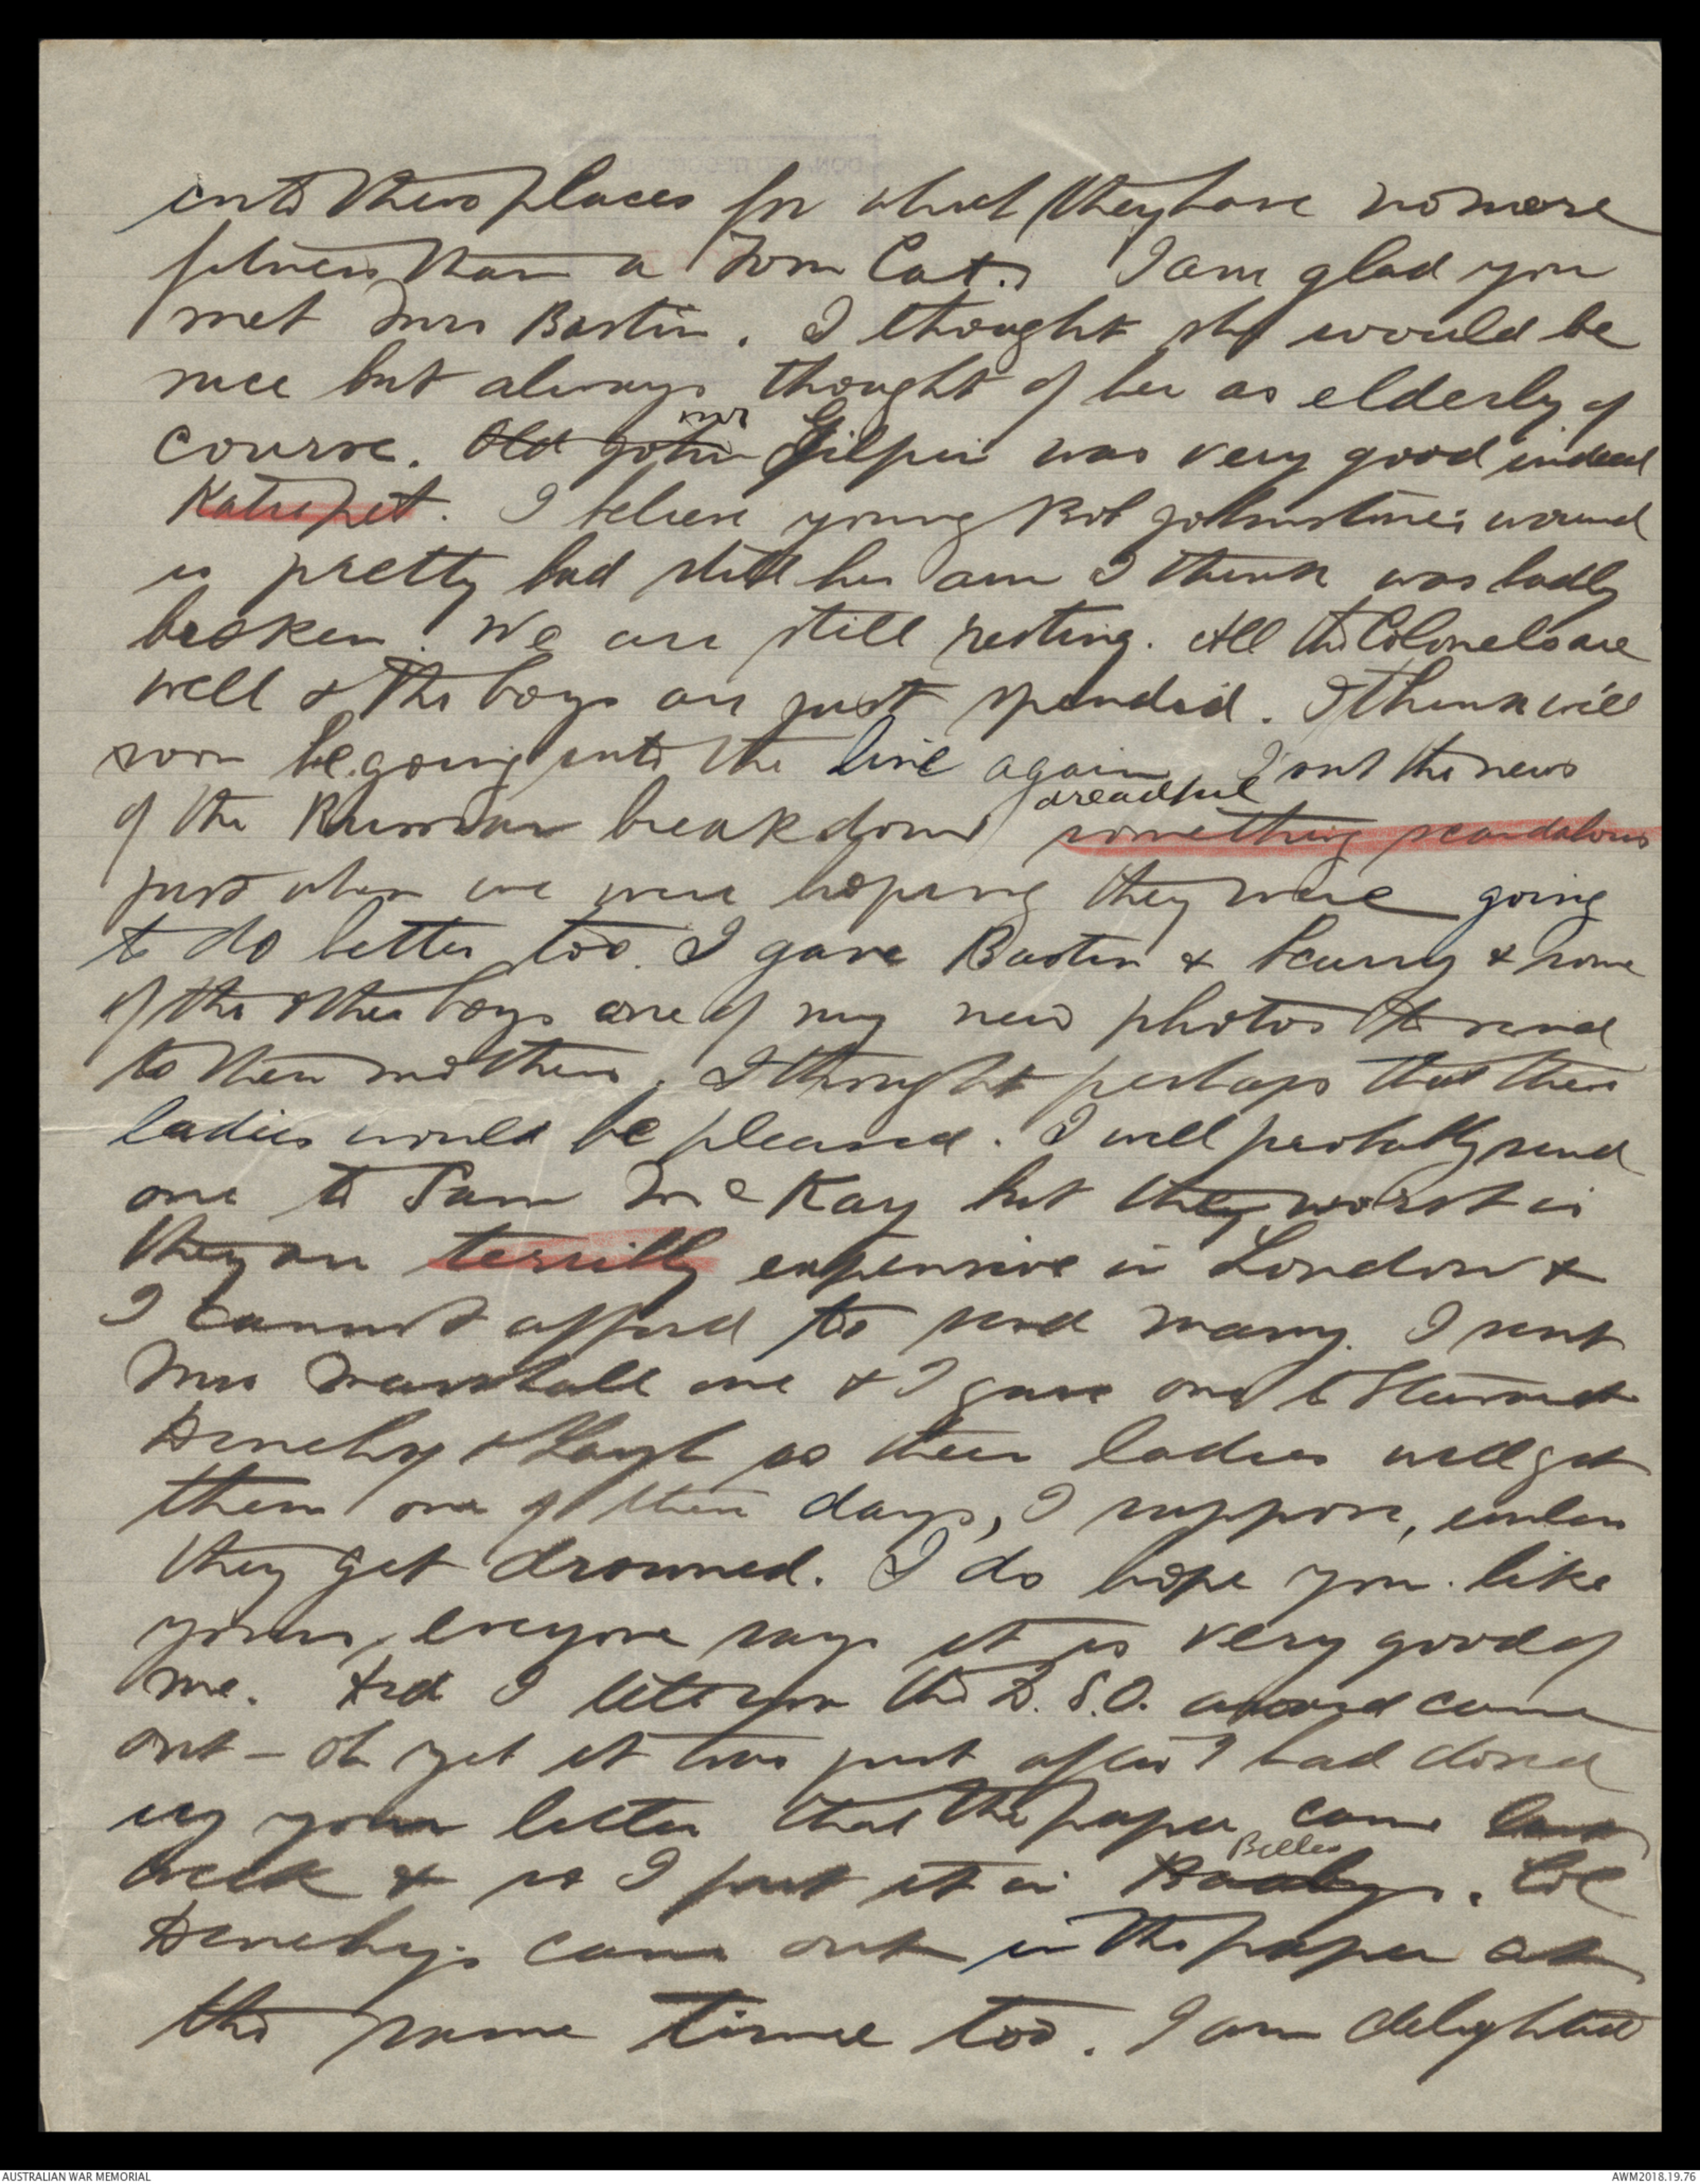 into these places for which they have no more
fitness than a Tom Cat. I am glad you
met Mrs Bastin. I thought she would be
nice but always thought of her as elderly of
course. Old John Mr Gilpin was very good indeed
Katie pet. I believe young Rob Johnstone's wound
is pretty bad still his arm I think was badly
broken. We are still resting. All the Colonels are
well & the boys are just splendid. I think will
soon be going into the line again. Isnt the news
of the Russian breakdown dreadful something scandalous
just when we were hoping they were going
to do better too. I gave Bastin & Scurry & some
of the other boys one of my new photos to send
to their mothers. I thought perhaps that their
ladies would be pleased. I will probably send
one to Sam McKay but the worst is
they are terribly expensive in London &
I cannot afford to send many. I sent
Mrs Marshall one & I gave one to Stewart
Denehy & Layh so their ladies will get
them one of these days, I suppose, unless
they get drowned. I do hope you like
yours, everyone says it is very good of
me. Did I tell you the D.S.O. award came
out - oh yet it was just after I had closed
up your letter that the paper came last
week & so I put it in Baby's Billes. Col
Denehy's came out in the paper at
the same time too. I am delighted
AUSTRALIAN WAR MEMORIAL
AWM2018.19.76